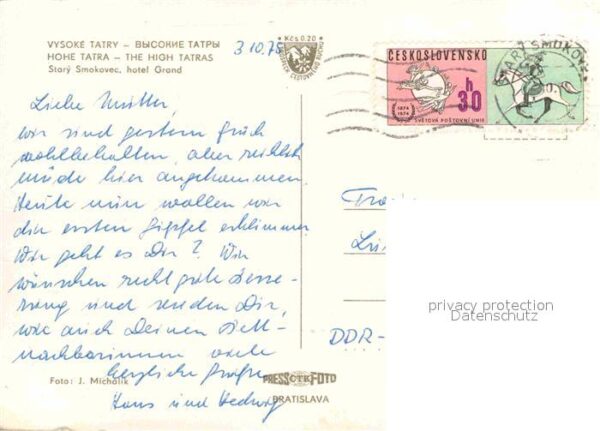 VYSOKÉ TATRY – ВЫСОКИЕ ТАТРЫ
HOHE TATRA – THE HIGH TATRAS
Starý Smokovec, hotel Grand
Kčs 0.20
3.10.75
ČESKOSLOVENSKO
h
30
1874
1974
SVĚTOVÁ POŠTOVNÍ UNIE
STARÝ SMOKOVEC
Liebe Mutter,
wir sind gestern früh
wohlbehalten, aber reichlich
müde hier angekommen
Heute nun wollen wir
den ersten Gipfel erklimmen
Wie geht es Dir? Wir
wünschen recht gute Besse-
rung und senden Dir,
wie auch Deinen Bett-
nachbarinnen viele
herzliche Grüße
Hans und Hedwig
DDR-
privacy protection
Datenschutz
Foto: J. Michalík
PRESSFOTO
BRATISLAVA